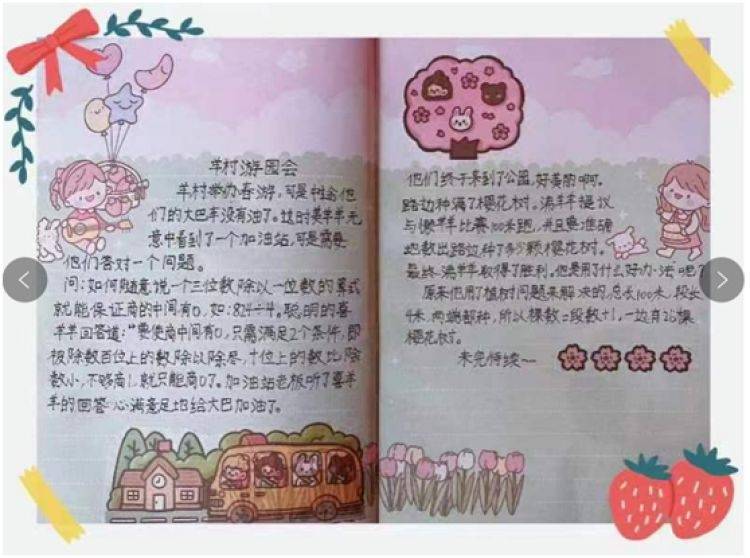 羊村游园会
羊村举办春游,可是村会他
们的大巴车没有油了。这时美羊羊无
意中看到了一个加油站,可是需要
他们答对一个问题。
问:如何随意说一个三位数除以一位数的算式
就能保证商的中间有0,如:824÷4。聪明的喜
羊羊回答道:“要使商中间有0,只需满足2个条件,即
被除数百位上的数除以除尽,十位上的数比除
数小,不够商1,就只能商0了。加油站老板听了喜羊
羊的回答心满意足地给大巴加油了。
他们终于来到了公园,好美的啊。
路边种满了樱花树。沸羊羊提议
与懒羊羊比赛100米跑,并且要准确
地数出路边种了多少颗樱花树。
最终,沸羊羊取得了胜利。他是用了什么好办法呢?
原来他用了植树问题来解决的,总长100米,段长
4米,两端都种,所以棵数=段数+1,一边有26棵
樱花树。
未完待续~